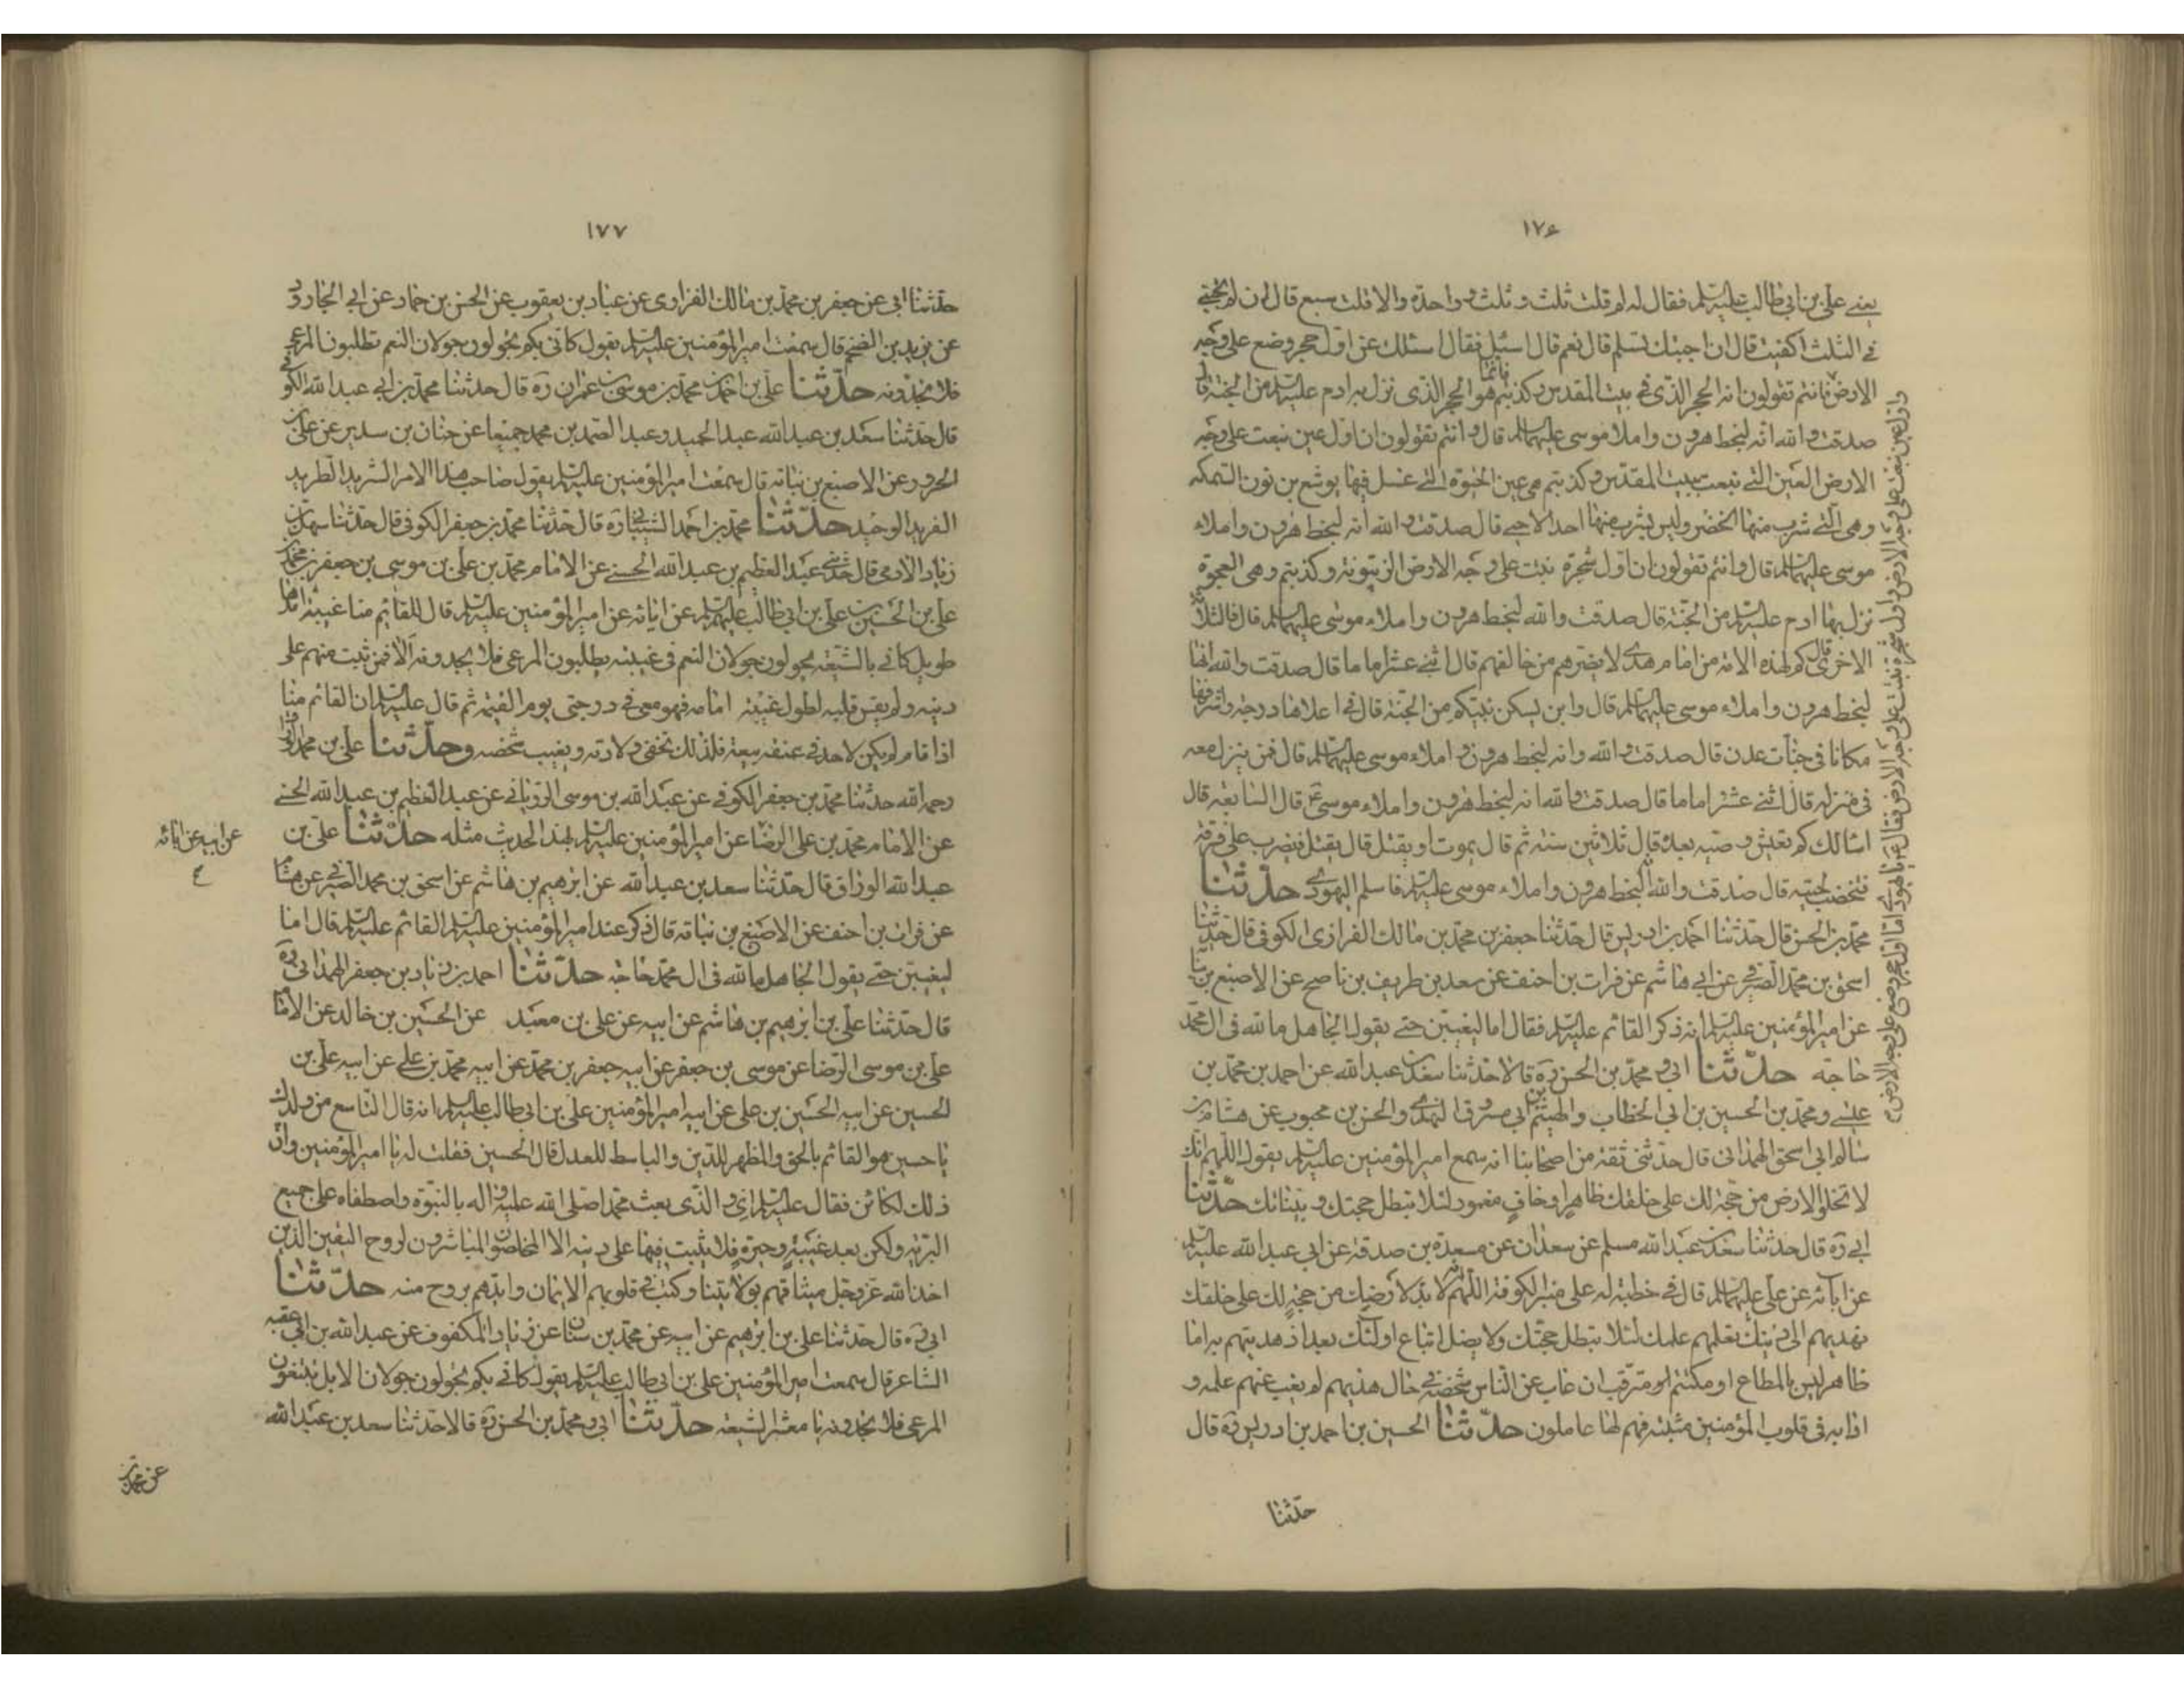 ١٧۶
يعنے علي بن ابي طالب عليه السلم فقال له لم قلت ثلث و ثلث و واحدة والا قلت سبع قال لان لم تجبني
في الثلث اكتفيت قال ان اجبتك تسلم قال نعم قال اسئل فقال اسئلك عن اول حجر وضع على وجه
الارض فانتم تقولون انه الحجر الذي في بيت المقدس وكذبتم هو الحجر الذي نزل به ادم عليه السلم من الجنة قال
صدقت والله انه لبخط هرون واملاء موسى عليهما السلم قال وانتم تقولون ان اول عين نبعت على وجه
الارض العين التي نبعت ببيت المقدس وكذبتم هي عين الحيوة التي غسل فيها يوشع بن نون السمكه
وهي التي شرب منها الخضر وليس يشرب منها احد الا حيي قال صدقت والله انه لبخط هرون واملاء
موسى عليهما السلم قال وانتم تقولون ان اول شجرة نبتت على وجه الارض الزيتونة وكذبتم وهي العجوة
نزل بها ادم عليه السلم من الجنة قال صدقت والله لبخط هرون واملاء موسى عليهما السلم قال فالثلاث
الاخرى قال كم لهذه الامة من امام هدى لا يضرهم من خالفهم قال اثنى عشر اماما قال صدقت والله انها
لبخط هرون واملاء موسى عليهما السلم قال واين يسكن نبيكم من الجنة قال في اعلاها درجة واشرفها
مكانا في جنات عدن قال صدقت والله وانه لبخط هرون واملاء موسى عليهما السلم قال فمن ينزل معه
في منزله قال اثنى عشر اماما قال صدقت والله انه لبخط هرون واملاء موسى قال السابعة قال
اسالك كم تعيش وصيه بعده قال ثلاثين سنة ثم قال يموت او يقتل قال يقتل فيضرب على قرنه
فتخضب لحيته قال صدقت والله انه لبخط هرون واملاء موسى عليه السلم فاسلم اليهودي حدثنا
محمد بن الحسن قال حدثنا احمد بن ادريس قال حدثنا جعفر بن محمد بن مالك الفزاري الكوفي قال حدثنا
اسحق بن محمد الصيرفي عن ابي هاشم عن فرات بن احنف عن سعد بن طريف بن ناصح عن الاصبغ بن نباتة
عن امير المؤمنين عليه السلم انه ذكر القائم عليه السلم فقال اما ليغيبن حتى يقول الجاهل ما لله في ال محمد
حاجة حدثنا ابي و محمد بن الحسن ره قالا حدثنا سعد بن عبد الله عن احمد بن محمد بن
عيسى و محمد بن الحسين بن ابي الخطاب والهيثم بن ابي مسروق النهدي والحسن بن محبوب عن هشام بن
سالم ابي اسحق الهمداني قال حدثني ثقة من اصحابنا انه سمع امير المؤمنين عليه السلم يقول اللهم انك
لا تخلو الارض من حجة لك على خلقك ظاهر او خاف مغمور لئلا تبطل حجتك و بيناتك حدثنا
ابي ره قال حدثنا سعد بن عبد الله مسلم عن سعدان عن مسعدة بن صدقة عن ابي عبد الله عليه السلم
عن ابائه عن علي عليهم السلم قال في خطبة له على منبر الكوفة اللهم انه لا بد لارضك من حجة لك على خلقك
تهديهم الى دينك تعلمهم علمك لئلا تبطل حجتك ولا يضل اتباع اوليائك بعد اذ هديتهم به اما
ظاهر ليس بالمطاع او مكتتم او مترقب ان غاب عن الناس شخصه في حال هدنتهم لم يغب عنهم علمه و
ادابه في قلوب المؤمنين مثبتة فهم لها عاملون حدثنا الحسين بن احمد بن ادريس ره قال
حدثنا
واول عين نبعت على وجه الارض واول شجرة نبتت على وجه الارض فقال يا يهودي اما اول حجر وضع على وجه الارض
١٧٧
حدثنا ابي عن جعفر بن محمد بن مالك الفزاري عن عباد بن يعقوب عن الحسن بن حماد عن ابي الجارود
عن يزيد بن الضخم قال سمعت امير المؤمنين عليه السلم يقول كاني بكم تجولون جولان النعم تطلبون المرعى
فلا تجدونه حدثنا علي بن احمد بن محمد بن موسى بن عمران ره قال حدثنا محمد بن ابي عبد الله الكوفي
قال حدثنا سعد بن عبد الله عبد الحميد و عبد الصمد بن محمد جميعا عن حنان بن سدير عن علي بن
الحزور عن الاصبغ بن نباتة قال سمعت امير المؤمنين عليه السلم يقول صاحب هذا الامر الشريد الطريد
الفريد الوحيد حدثنا محمد بن احمد الشيباني ره قال حدثنا محمد بن جعفر الكوفي قال حدثنا سهل بن
زياد الادمي قال حدثني عبد العظيم بن عبد الله الحسني عن الامام محمد بن علي بن موسى بن جعفر بن محمد بن
علي بن الحسين بن علي بن ابي طالب عليهم السلم عن ابائه عن امير المؤمنين عليه السلم قال للقائم منا غيبة امدها
طويل كاني بالشيعة يجولون جولان النعم في غيبته يطلبون المرعى فلا يجدونه الا فمن ثبت منهم على
دينه ولم يقس قلبه لطول غيبة امامه فهو معي في درجتي يوم القيمة ثم قال عليه السلم ان القائم منا
اذا قام لم يكن لاحد في عنقه بيعة فلذلك تخفى ولادته ويغيب شخصه وحدثنا علي بن محمد
رحمه الله حدثنا محمد بن جعفر الكوفي عن عبد الله بن موسى الروياني عن عبد العظيم بن عبد الله الحسني
عن الامام محمد بن علي الرضا عن امير المؤمنين عليه السلم بهذا الحديث مثله حدثنا علي بن
عن ابيه عن ابائه ع
عبد الله الوراق قال حدثنا سعد بن عبد الله عن ابرهيم بن هاشم عن اسحق بن محمد الصيرفي عن هشام
عن فرات بن احنف عن الاصبغ بن نباتة قال ذكر عند امير المؤمنين عليه السلم القائم عليه السلم قال اما
ليغيبن حتى يقول الجاهل ما لله في ال محمد حاجة حدثنا احمد بن زياد بن جعفر الهمداني ره
قال حدثنا علي بن ابرهيم بن هاشم عن ابيه عن علي بن معبد عن الحسين بن خالد عن الامام
علي بن موسى الرضا عن موسى بن جعفر عن ابيه جعفر بن محمد عن ابيه محمد بن علي عن ابيه علي بن
الحسين عن ابيه الحسين بن علي عن ابيه امير المؤمنين علي بن ابي طالب عليه السلم انه قال التاسع من ولدك
يا حسين هو القائم بالحق والمظهر للدين والباسط للعدل قال الحسين فقلت له يا امير المؤمنين وان
ذلك لكائن فقال عليه السلم اي و الذي بعث محمدا صلى الله عليه و اله بالنبوة واصطفاه على جميع
البرية ولكن بعد غيبة وحيرة فلا يثبت فيها على دينه الا المخلصون المباشرون لروح اليقين الذين
اخذ الله عز وجل ميثاقهم بولايتنا وكتب في قلوبهم الايمان وايدهم بروح منه حدثنا
ابي ره قال حدثنا علي بن ابرهيم عن ابيه عن محمد بن سنان عن زياد المكفوف عن عبد الله بن ابي عقبه
الشاعر قال سمعت امير المؤمنين علي بن ابي طالب عليه السلم يقول كاني بكم تجولون جولان الابل تبتغون
المرعى فلا تجدونه يا معشر الشيعه حدثنا ابي و محمد بن الحسن ره قالا حدثنا سعد بن عبد الله
عن محمد بن